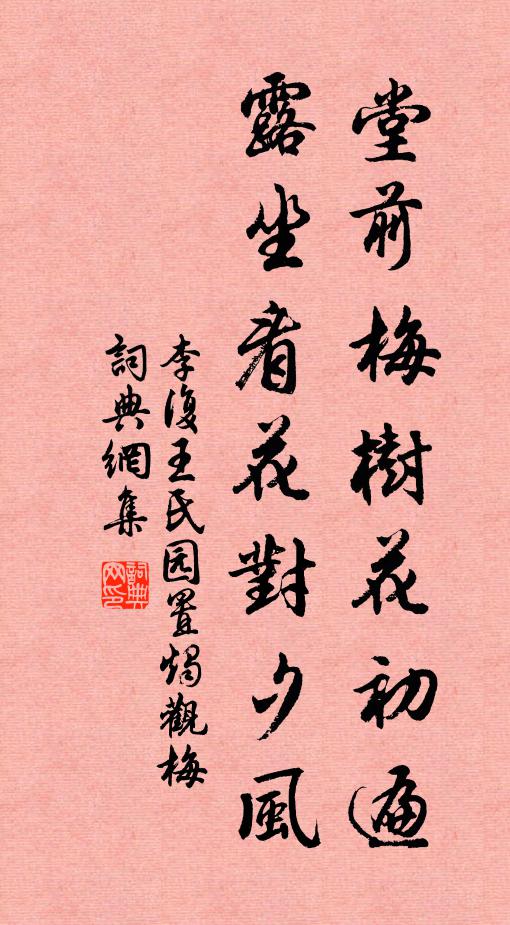 堂前梅樹花初遍
露坐看花對夕風
李復王氏园置燭觀梅
詞典網集
詞典网印